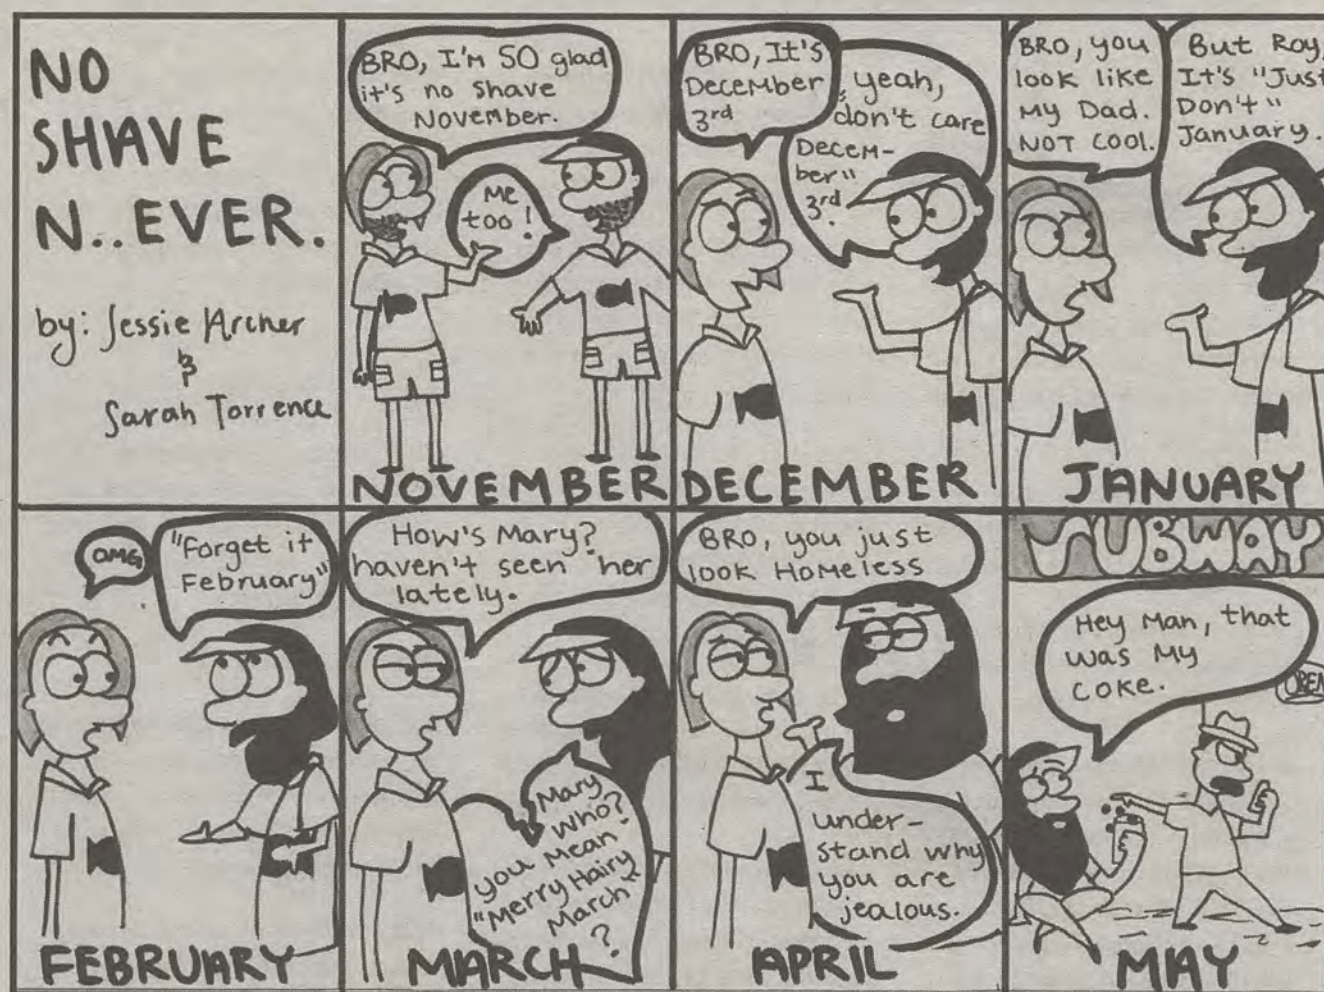 NO
SHAVE
N..EVER.
by: Jessie Archer
&
Sarah Torrence
BRO, I'M SO glad
it's no shave
November.
Me
too!
NOVEMBER
BRO, It's
December
3rd
yeah,
don't care
Decem-
ber"
3rd.
DECEMBER
BRO, you
look like
My Dad.
NOT COOL.
But Roy,
It's "Just
Don't"
January.
JANUARY
OMG
"Forget it
February"
FEBRUARY
How's Mary?
haven't seen her
lately.
Mary
who?
you mean
"Merry Hairy
March"
?
MARCH
BRO, you just
look Homeless
I
under-
stand why
you are
jealous.
APRIL
SUBWAY
Hey Man, that
was My
COKE.
OPEN
MAY